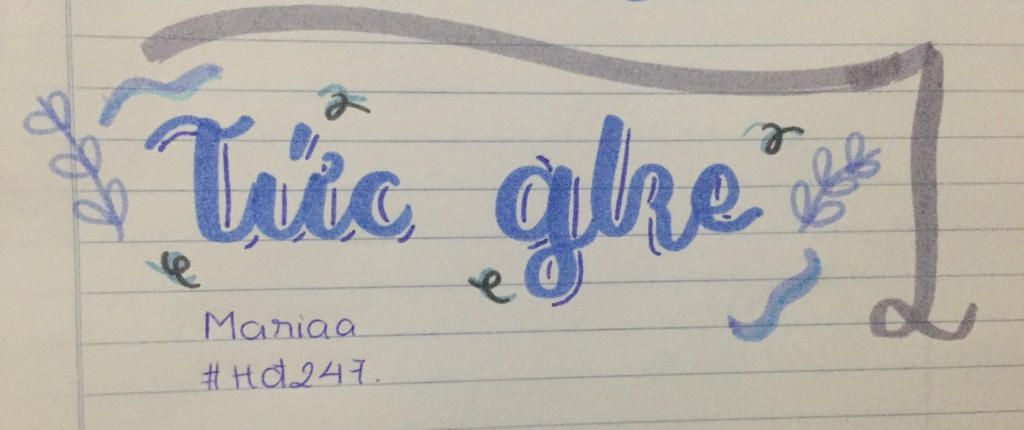 Tức ghe
Mariaa
#Hđ247.